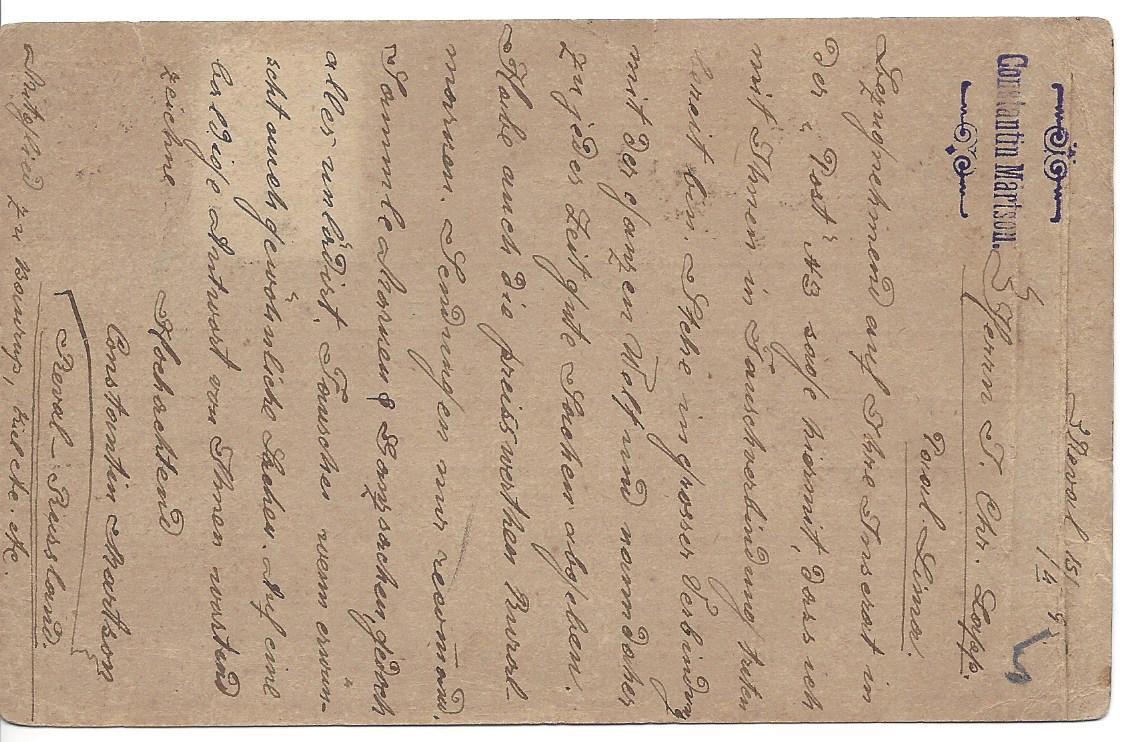 Reval 15/4 9
Constantin Märtson.
Herrn T. Chr. Lopp.
Lima.
Bezugnehmend auf Ihre Inserat in
der "Post" № 3 sage hiermit, dass ich
mit Ihnen in Tauschverbindung treten
bereit bin. Stehe in grosser Verbindung
mit der ganzen Welt und kann daher
zu jeder Zeit gute Sachen abgeben.
Habe auch die preisswerthen Rural-
marken. Sendungen nur recomand.
Sammle Marken & Ganzsachen, jedoch
alles unlädirt. Tausche wenn erwün-
scht auch gewöhnliche Sachen. Auf eine
baldige Antwort von Ihnen wartend
zeichne
Hochachtend
Constantin Märtson
Reval-Russland.
Mitglied zu etc. etc.